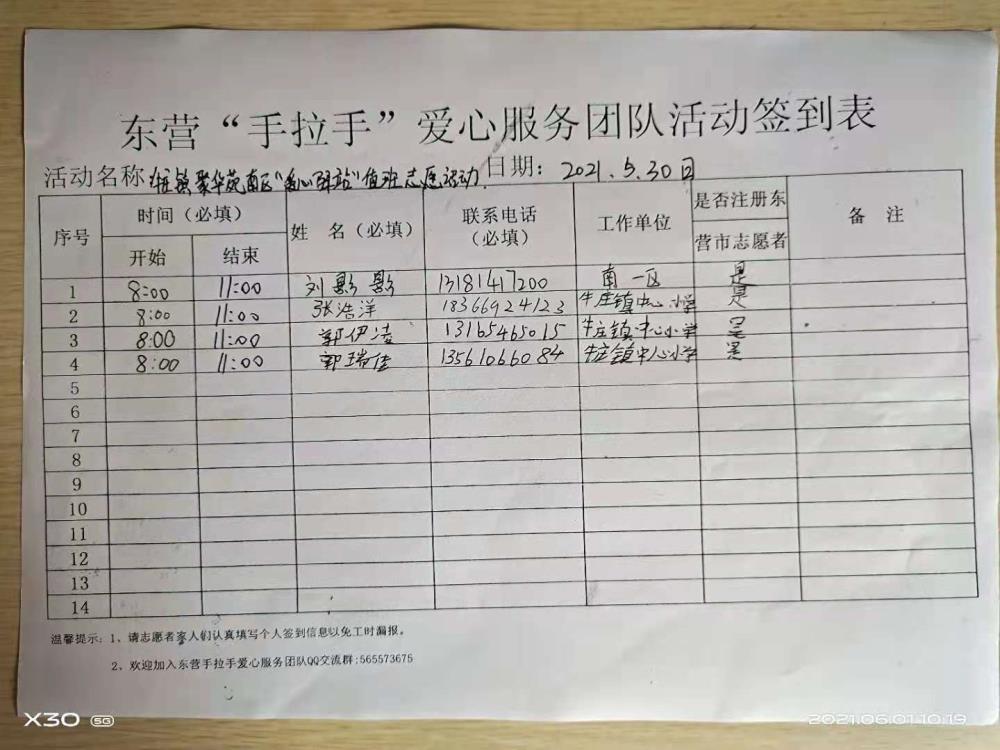 东营“手拉手”爱心服务团队活动签到表
活动名称 牛庄镇聚华苑南区“爱心驿站”值班志愿活动 日期：2021.5.30日
序号 时间（必填） 姓 名（必填） 联系电话（必填） 工作单位 是否注册东营市志愿者 备 注
开始 结束
1 8:00 11:00 刘影影 13181417200 南一区 是
2 8:00 11:00 张浩洋 18366924123 牛庄镇中心小学 是
3 8:00 11:00 郭伊凌 13165465015 牛庄镇中心小学 是
4 8:00 11:00 郭瑞佳 13561066084 牛庄镇中心小学 是
5
6
7
8
9
10
11
12
13
14
温馨提示：1、请志愿者家人们认真填写个人签到信息以免工时漏报。
2、欢迎加入东营手拉手爱心服务团队QQ交流群:565573675
X30 5G
2021.06.01 10:19